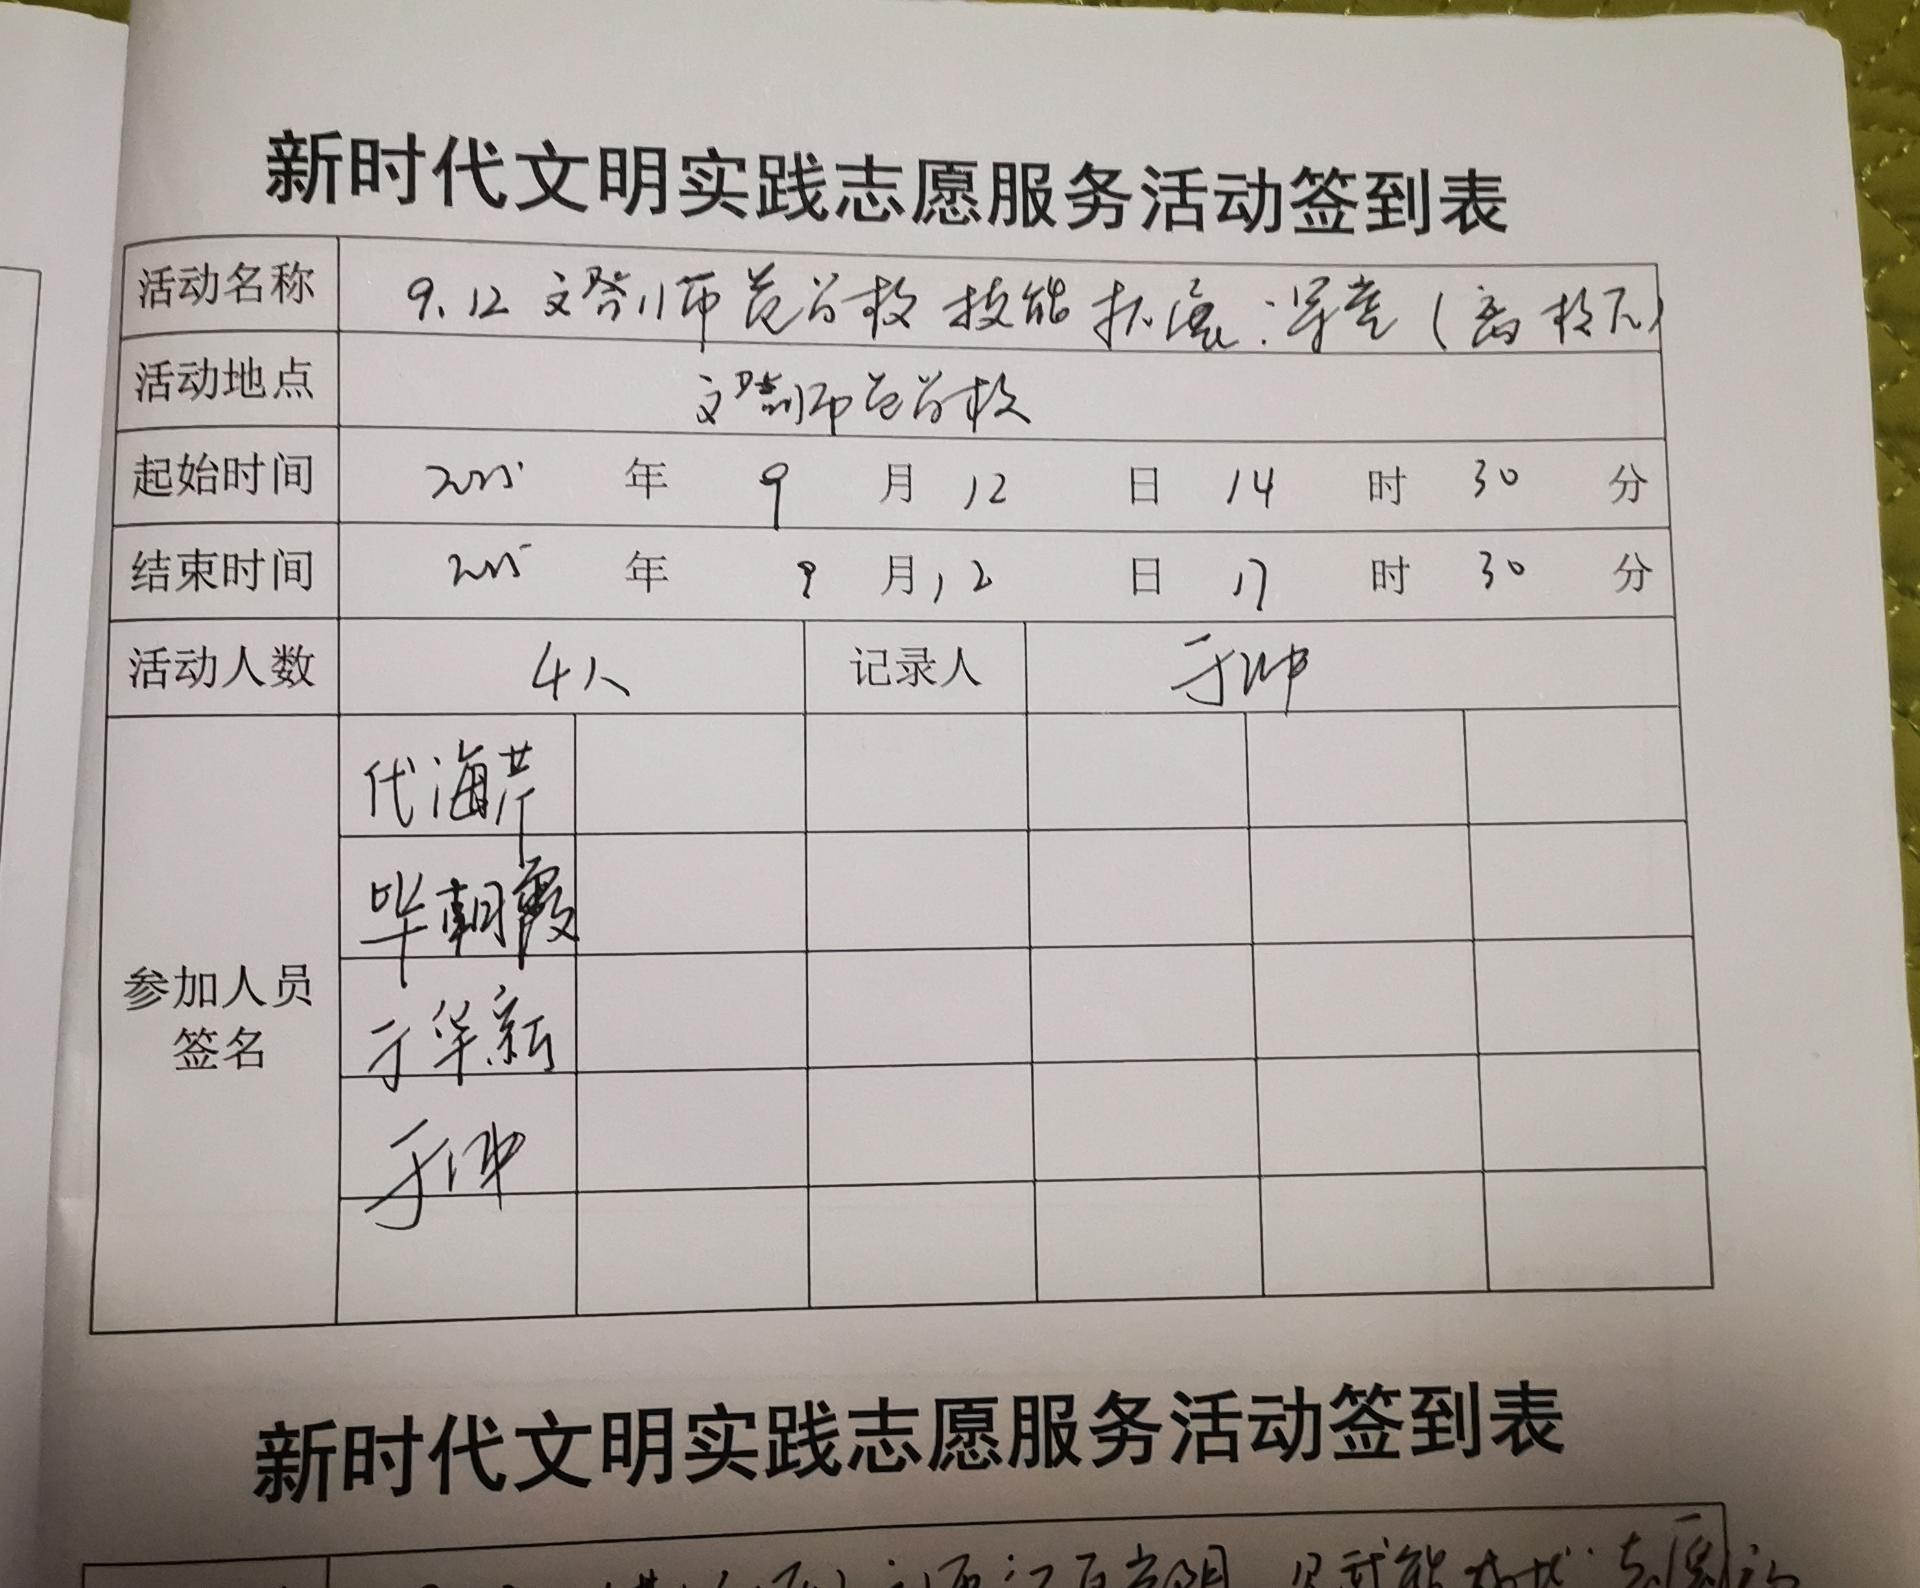 新时代文明实践志愿服务活动签到表
活动名称 9.12 文登师范学校技能 (高校区)
活动地点 文登师范学校
起始时间 2025 年 9 月 12 日 14 时 30 分
结束时间 2025 年 9 月 12 日 17 时 30 分
活动人数 4人 记录人 于坤
参加人员签名
代海芹
毕朝霞
于华新
于坤
新时代文明实践志愿服务活动签到表